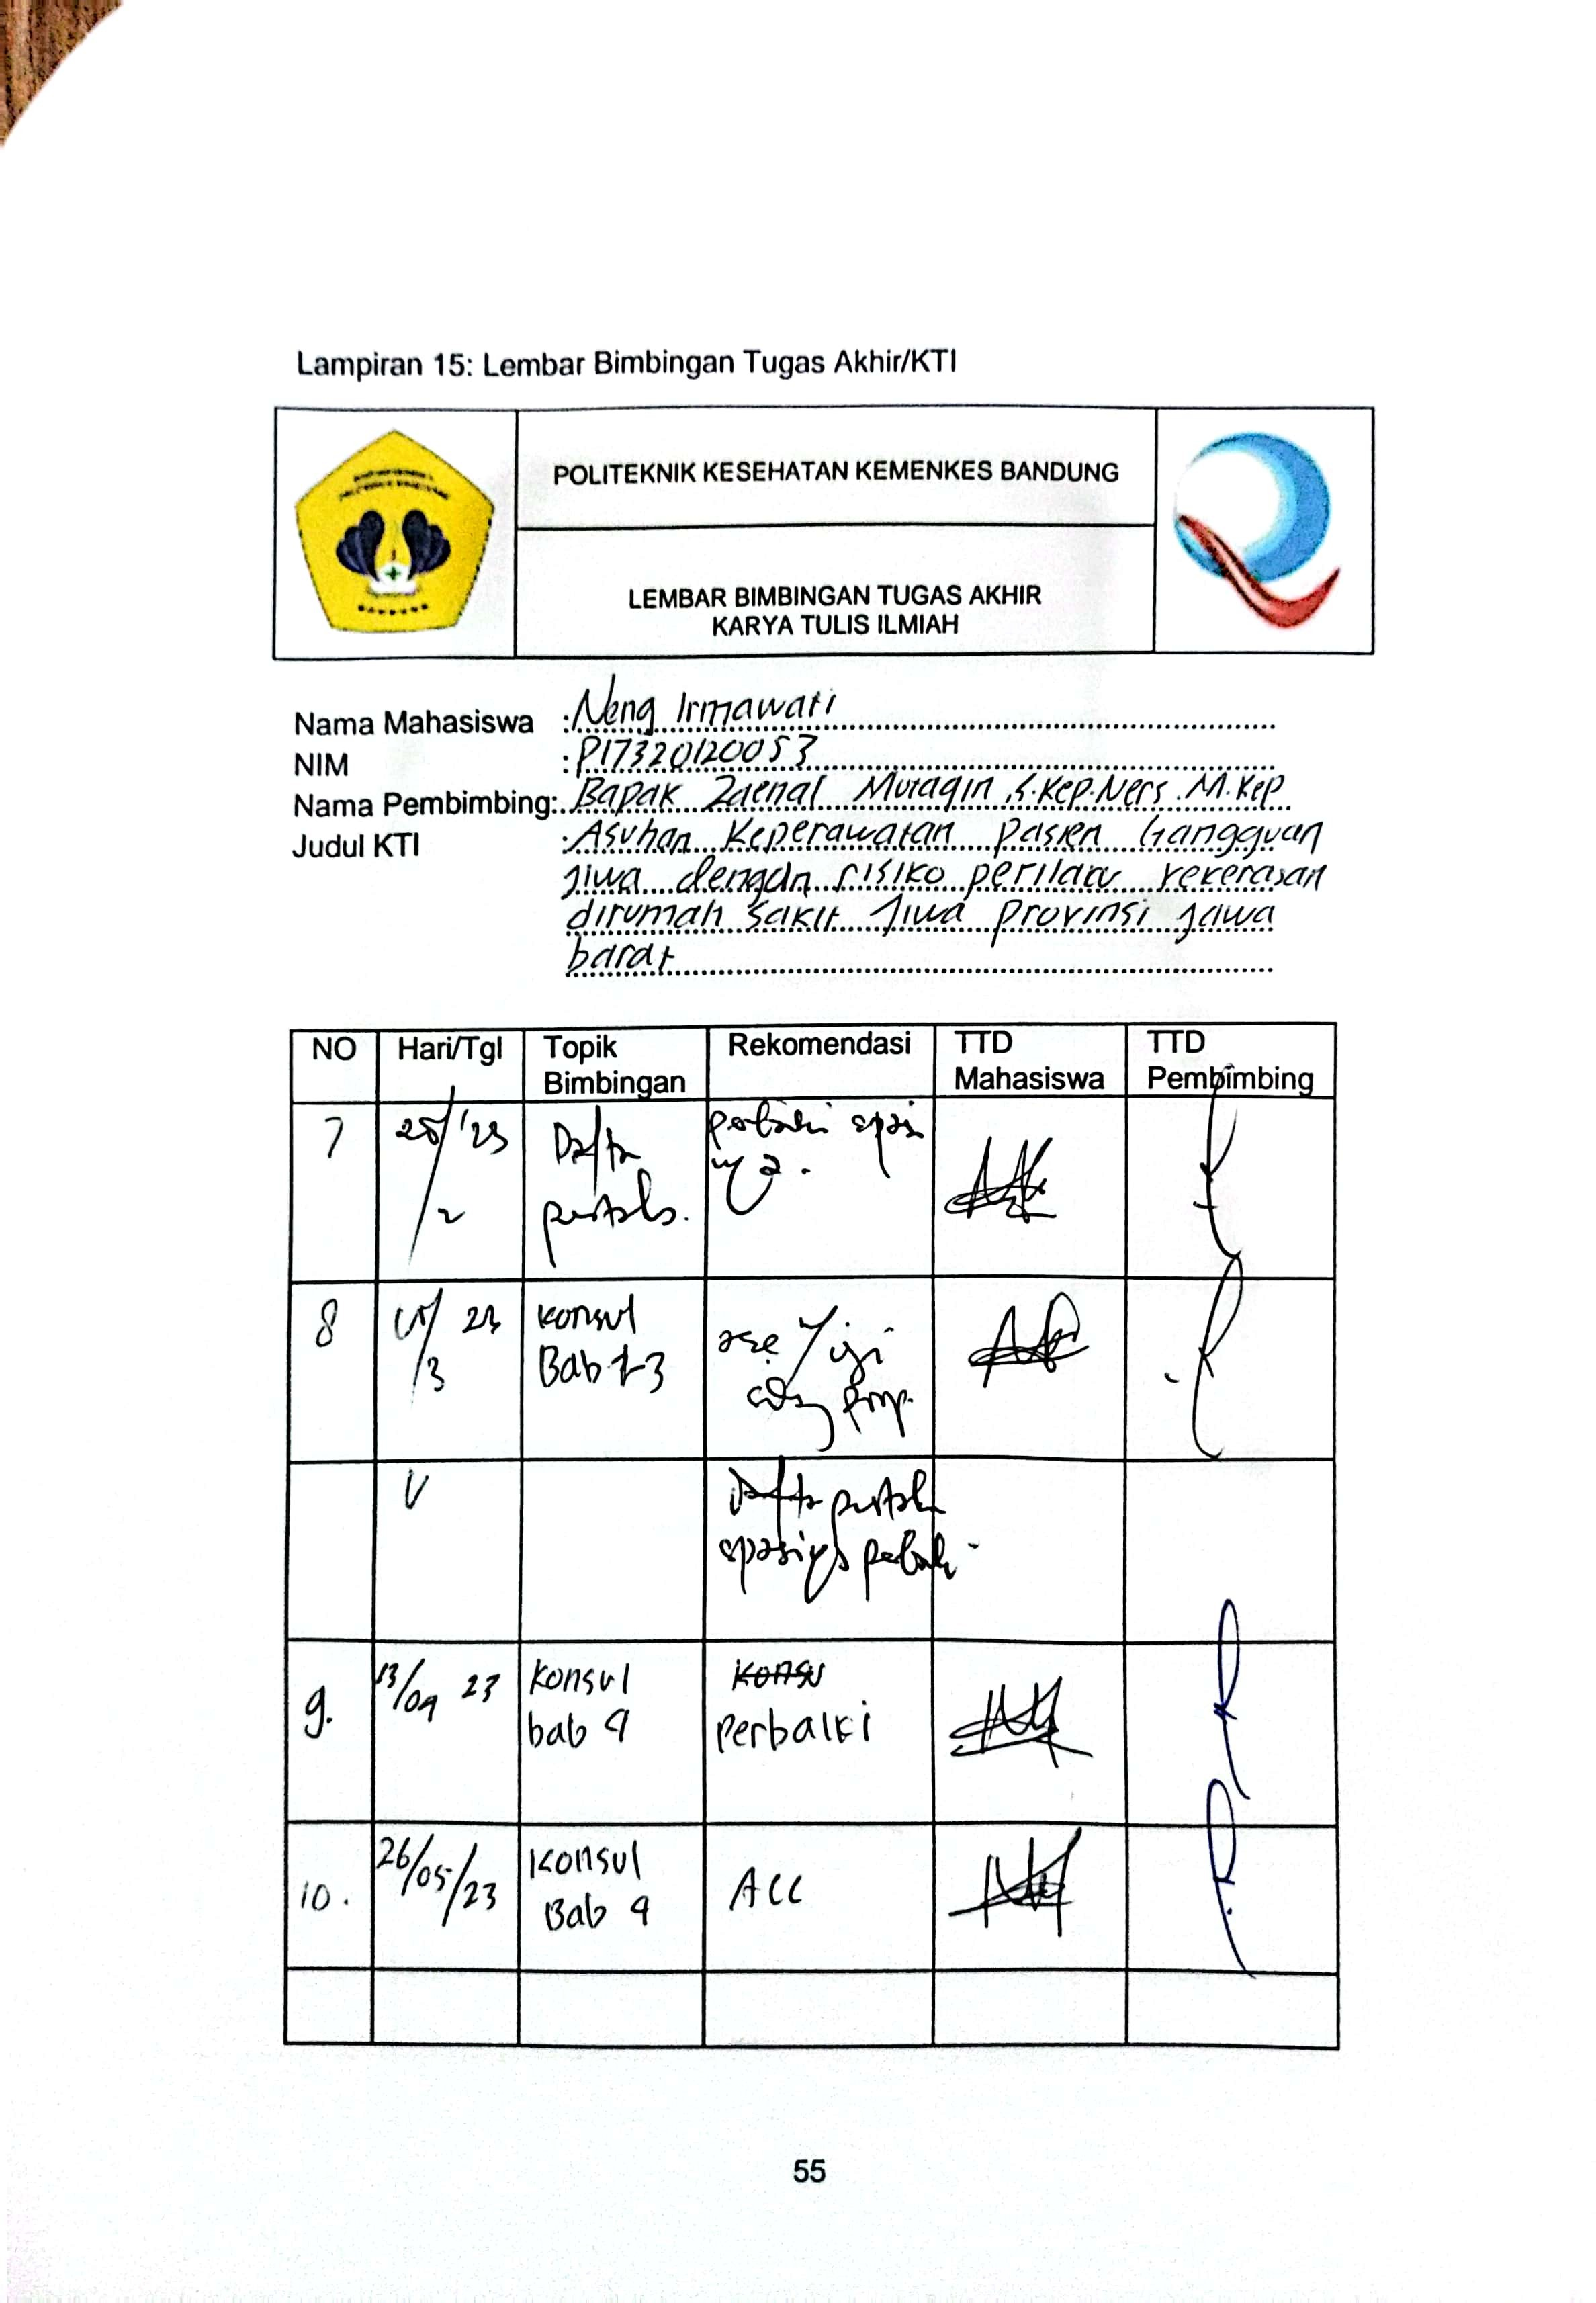 Lampiran 15: Lembar Bimbingan Tugas Akhir/KTI
POLITEKNIK KESEHATAN KEMENKES BANDUNG
LEMBAR BIMBINGAN TUGAS AKHIR
KARYA TULIS ILMIAH
Nama Mahasiswa : Neng Irmawati
NIM : P17320120053
Nama Pembimbing: Bapak Zaenal Mutaqin, S.Kep.Ners.M.Kep
Judul KTI : Asuhan Keperawatan pasien Gangguan
Jiwa dengan risiko perilaku kekerasan
dirumah sakit Jiwa provinsi jawa
barat
NO Hari/Tgl Topik Bimbingan Rekomendasi TTD Mahasiswa TTD Pembimbing
7 Dafta
8 23 konsul
/3 Bab 1-3
9. 13/04 23 Konsul Konsu
bab 4 perbaiki
10. 26/05/23 Konsul ACC
Bab 4
55